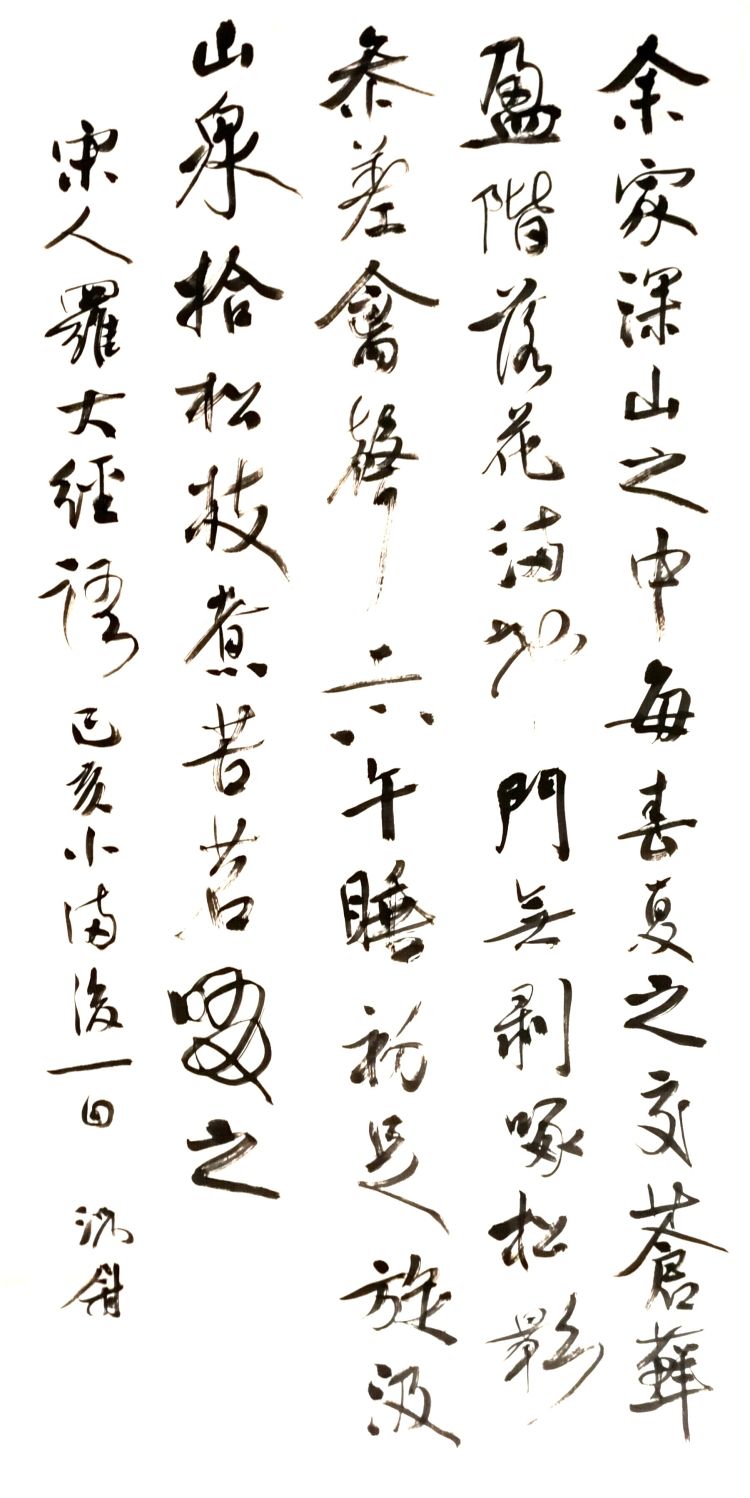 余家深山之中每春夏之交蒼蘚
盈階落花滿地門無剥啄松影
参差禽聲上下午睡初足旋汲
山泉拾松枝煮苦茗啜之
宋人羅大經語 己亥小滿後一日